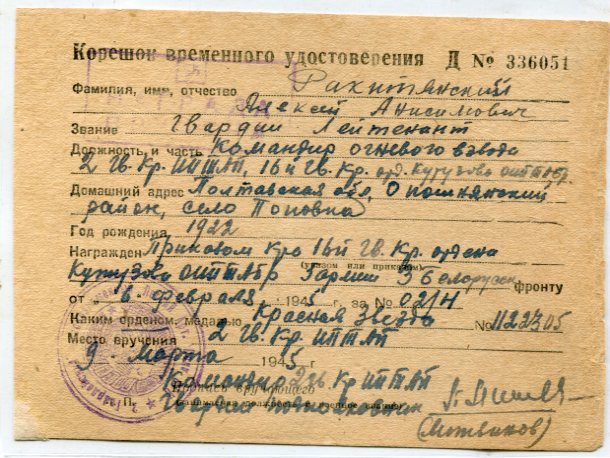 Корешок временного удостоверения Д № 336051
Фамилия, имя, отчество Ракитянский
Алексей Анисимович
Звание Гвардии Лейтенант
Должность и часть Командир огневого взвода
2 Гв. Кр. ИПТАП, 16й Гв. Кр. орд. Кутузова ОИПТАБР
Домашний адрес Полтавская обл, Опошнянский
район, село Поповка
Год рождения 1922
Награжден Приказом 16й Гв. Кр. ордена
(указом или приказом)
Кутузова ОИПТАБР Армии 3 Белорусск фронту
от „6" февраля 1945 г., за № 02/Н
Каким орденом, медалью Красная Звезда № 1122305
Место вручения 2 Гв. Кр. ИПТАП
9 Марта 1945 г.
Командир 2 Гв. Кр ИПТАП
Гвардии подполковник
М. П.